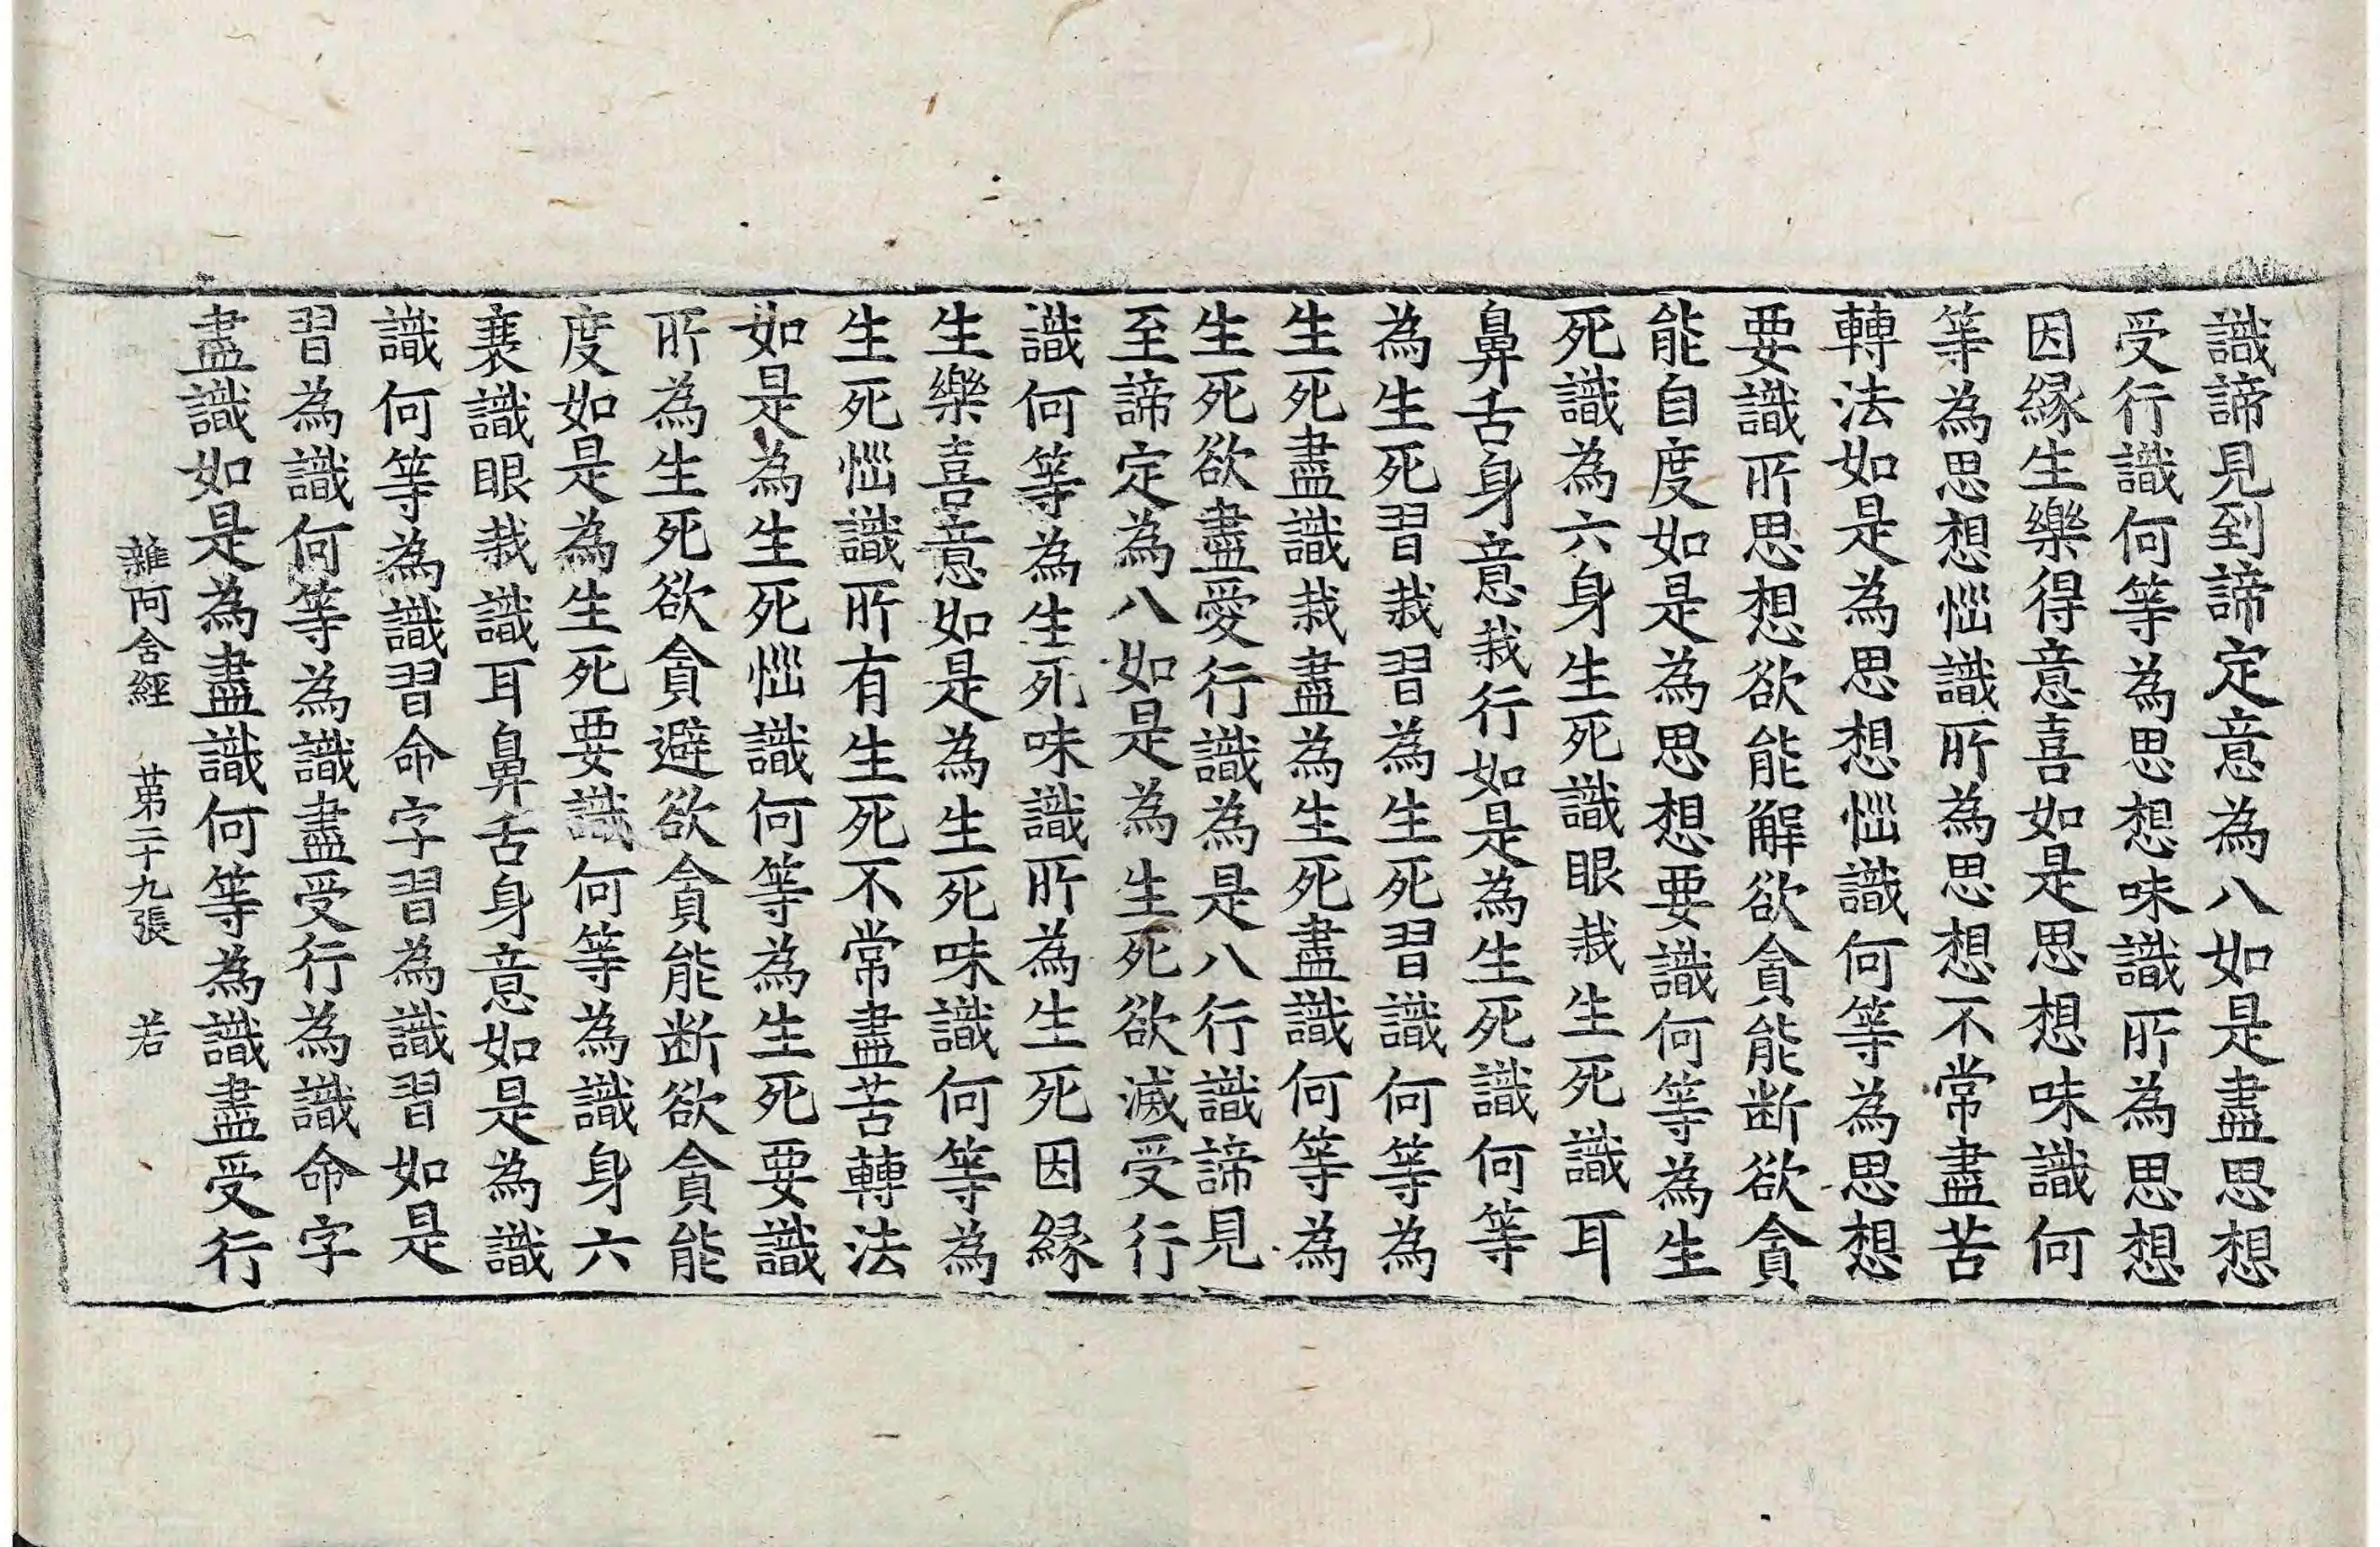 識諦見到諦定意為八如是盡思想
受行識何等為思想味識所為思想
因緣生樂得意喜如是思想味識何
等為思想惱識所為思想不常盡苦
轉法如是為思想惱識何等為思想
要識所思想欲能解欲貪能断欲貪
能自度如是為思想要識何等為生
死識為六身生死識眼栽生死識耳
鼻舌身意栽行如是為生死識何等
為生死習栽習為生死習識何等為
生死盡識栽盡為生死盡識何等為
生死欲盡愛行識為是八行識諦見
至諦定為八如是為生死欲滅受行
識何等為生死味識所為生死因緣
生樂喜意如是為生死味識何等為
生死惱識所有生死不常盡苦轉法
如是為生死惱識何等為生死要識
所為生死欲貪避欲貪能断欲貪能
度如是為生死要識何等為識身六
衰識眼栽識耳鼻舌身意如是為識
識何等為識習命字習為識習如是
習為識何等為識盡受行為識命字
盡識如是為盡識何等為識盡受行
雜阿含經　苐二十九張　若